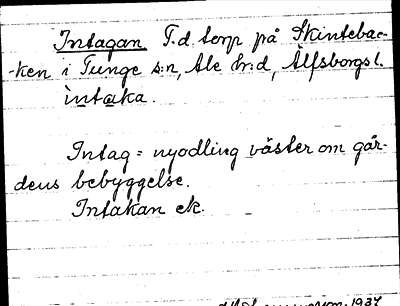 Intagan T.d torp på Skintebac-
-ken i Tunge s:n, Ale hr:d, Älfsborgs l.
ìntaka.
Intag = nyodling väster om går-
dens bebyggelse.
Intakan ek.
1937